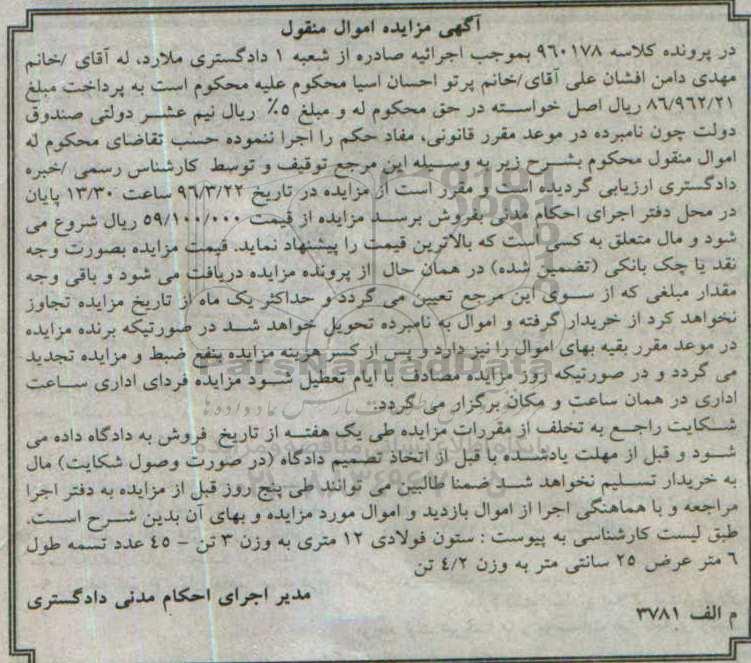 آگهی مزایده اموال منقول
در پرونده کلاسه ۹۶۰۱۷۸ بموجب اجرائیه صادره از شعبه ۱ دادگستری ملارد، له آقای /خانم
مهدی دامن افشان علی آقای/خانم پرتو احسان اسیا محکوم علیه محکوم است به پرداخت مبلغ
۸۶/۹۶۲/۲۱ ریال اصل خواسته در حق محکوم له و مبلغ ۵٪ ریال نیم عشر دولتی صندوق
دولت چون نامبرده در موعد مقرر قانونی، مفاد حکم را اجرا ننموده حسب تقاضای محکوم له
اموال منقول محکوم بشرح زیر به وسیله این مرجع توقیف و توسط کارشناس رسمی /خبره
دادگستری ارزیابی گردیده است و مقرر است از مزایده در تاریخ ۹۶/۳/۲۲ ساعت ۱۳/۳۰ پایان
در محل دفتر اجرای احکام مدنی بفروش برسد مزایده از قیمت ۵۹/۱۰۰/۰۰۰ ریال شروع می
شود و مال متعلق به کسی است که بالاترین قیمت را پیشنهاد نماید. قیمت مزایده بصورت وجه
نقد یا چک بانکی (تضمین شده) در همان حال از پرونده مزایده دریافت می شود و باقی وجه
مقدار مبلغی که از سوی این مرجع تعیین می گردد و حداکثر یک ماه از تاریخ مزایده تجاوز
نخواهد کرد از خریدار گرفته و اموال به نامبرده تحویل خواهد شد در صورتیکه برنده مزایده
در موعد مقرر بقیه بهای اموال را نیز دارد و پس از کسر هزینه مزایده بنفع ضبط و مزایده تجدید
می گردد و در صورتیکه روز مزایده مصادف با ایام تعطیل شود مزایده فردای اداری ساعت
اداری در همان ساعت و مکان برگزار می گردد.
شکایت راجع به تخلف از مقررات مزایده طی یک هفته از تاریخ فروش به دادگاه داده می
شود و قبل از مهلت یادشده با قبل از اتخاذ تصمیم دادگاه (در صورت وصول شکایت) مال
به خریدار تسلیم نخواهد شد ضمنا طالبین می توانند طی پنج روز قبل از مزایده به دفتر اجرا
مراجعه و با هماهنگی اجرا از اموال بازدید و اموال مورد مزایده و بهای آن بدین شرح است.
طبق لیست کارشناسی به پیوست : ستون فولادی ۱۲ متری به وزن ۳ تن - ۴۵ عدد تسمه طول
۶ متر عرض ۲۵ سانتی متر به وزن ۴/۲ تن
مدیر اجرای احکام مدنی دادگستری
م الف ۳۷۸۱
ParsNamadData